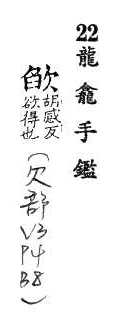 22龍龕手鑑
欿胡感反欲得也
(欠部V3P4B8)